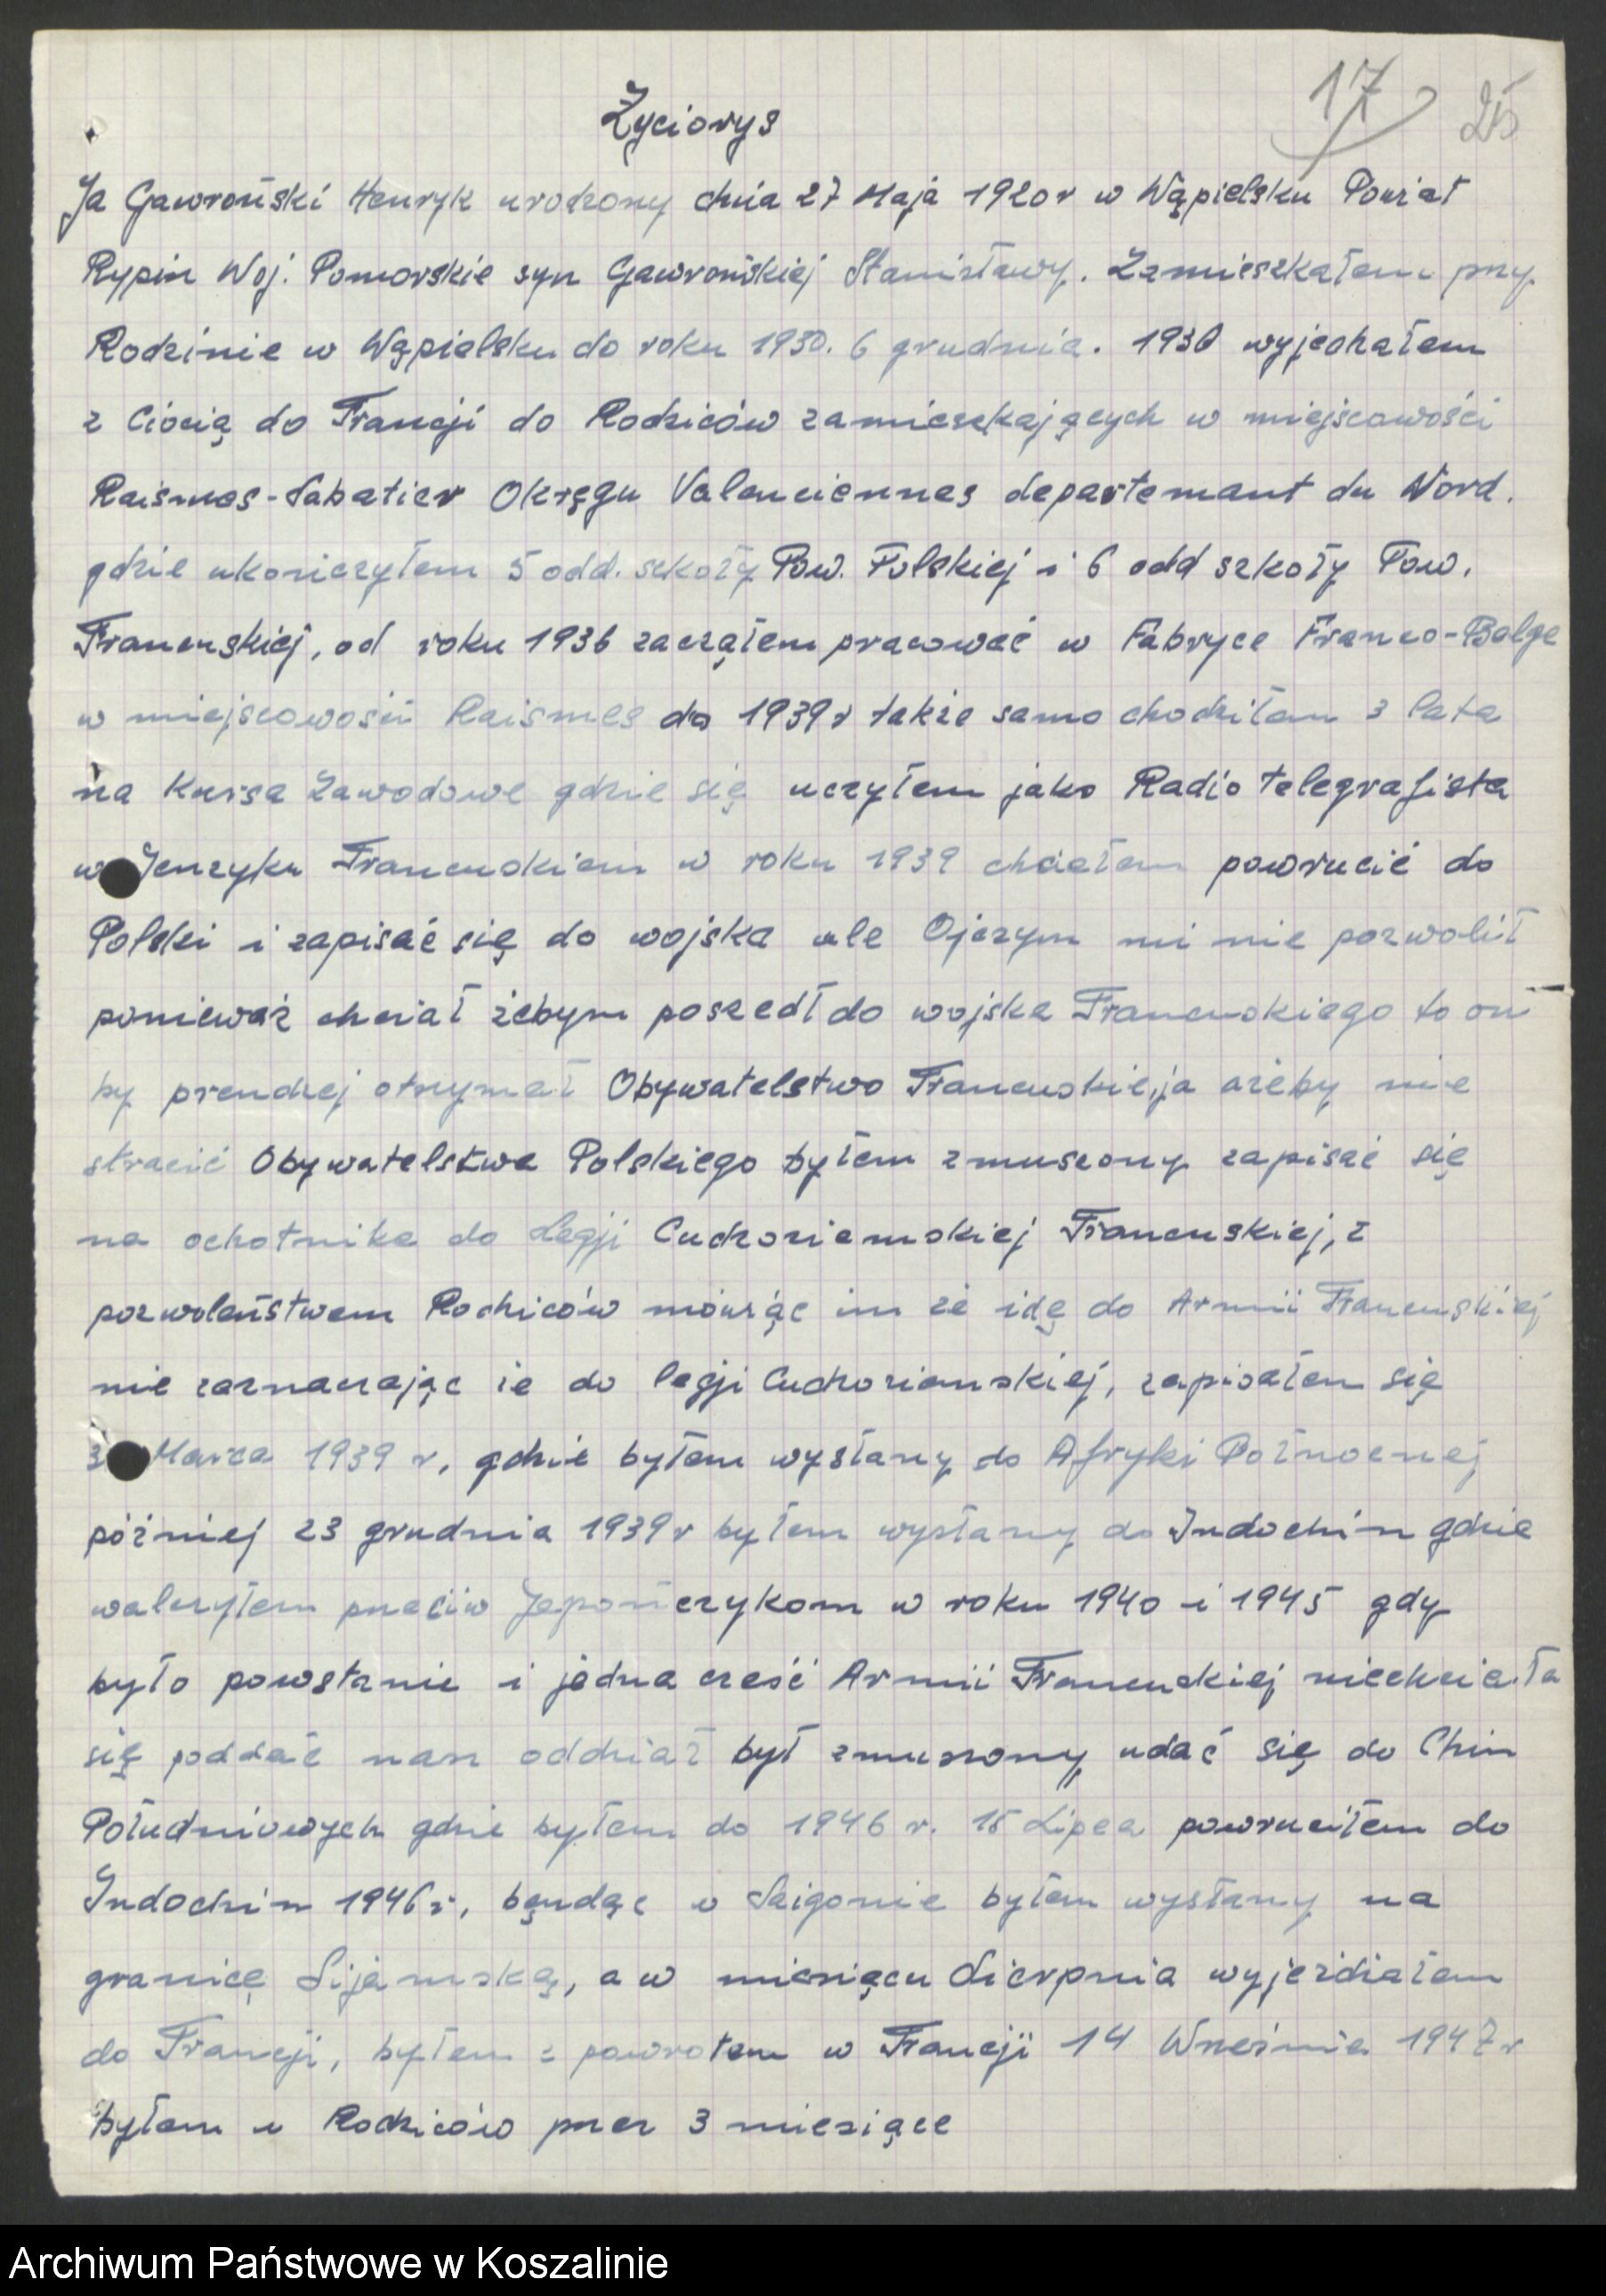 17 25
Życiorys
Ja Gawroński Henryk urodzony dnia 27 Maja 1920r w Wąpielsku Powiat
Rypin Woj. Pomorskie syn Gawrońskiej Stanisławy. Zamieszkałem przy
Rodzinie w Wąpielsku do roku 1930. 6 grudnia. 1930 wyjechałem
z Ciocią do Francji do Rodziców zamieszkających w miejscowości
Raismes-Sabatier Okręgu Valenciennes departemant du Nord.
gdzie ukończyłem 5 odd. szkoły Pow. Polskiej i 6 odd szkoły Pow.
Francuskiej, od roku 1936 zacząłem pracować w Fabryce Franco-Belge
w miejscowości Raismes do 1939r także samo chodziłem 3 lata
na Kursa Zawodowe gdzie się uczyłem jako Radio telegrafista
w Jenzyku Francuskiem w roku 1939 chciałem powrucić do
Polski i zapisać się do wojska ale Ojczym mi nie pozwolił
ponieważ chciał żebym poszedł do wojska Francuskiego to on
by prendzej otrzymał Obywatelstwo Francuskie, ja ażeby nie
stracić Obywatelstwa Polskiego byłem zmuszony zapisać się
na ochotnika do Legji Cudzoziemskiej Francuskiej, z
pozwoleństwem Rodziców mówiąc im że idę do Armii Francuskiej
nie zaznaczając że do legji Cudzoziemskiej, zapisałem się
3 Marca 1939 r, gdzie byłem wysłany do Afryki Północnej
później 23 grudnia 1939r byłem wysłany do Indochin gdzie
walczyłem przeciw Japończykom w roku 1940 i 1945 gdy
było powstanie i jedna cześć Armii Francuskiej niechciała
się poddać nasz oddział był zmuszony udać się do Chin
Południowych gdzie byłem do 1946 r. 15 Lipca powruciłem do
Indochin 1946r, będąc w Saigonie byłem wysłany na
granicę Sijamską, a w miesiącu Sierpnia wyjeżdżałem
do Francji, byłem z powrotem w Francji 14 Wrześnie 1947r
byłem u Rodziców przez 3 miesiące
Archiwum Państwowe w Koszalinie